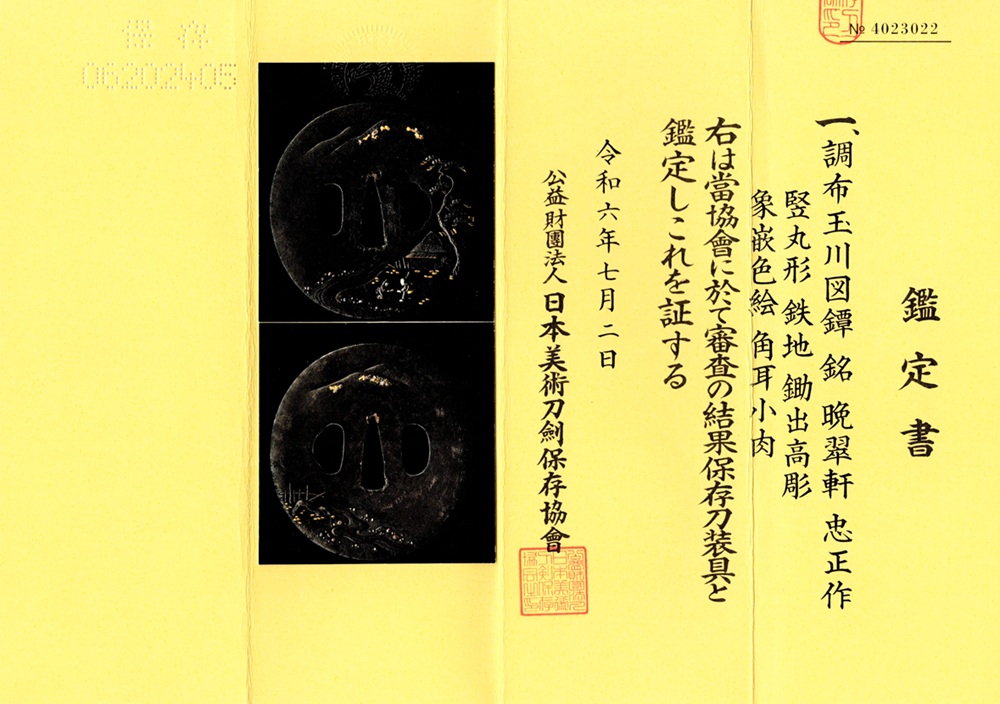 № 4023022
鑑定書
一、調布玉川図鐔 銘 晩翠軒 忠正作
竪丸形 鉄地 鋤出高彫
象嵌色絵 角耳小肉
右は當協會に於て審査の結果保存刀装具と
鑑定しこれを証する
令和六年七月二日
公益財團法人 日本美術刀劍保存協會
保存
06202405